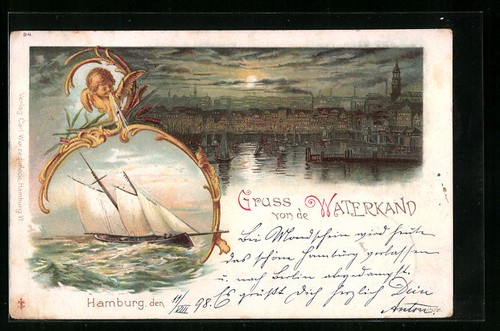 94.
Gruss
von de WATERKAND
Bei Mondschein wird heute
das schöne Hamburg verlassen
u. nach Berlin abgedampft.
Hamburg, den 14/VIII 98. Es grüßt Dich herzlich Dein
Anton
Verlag Carl Hamburg